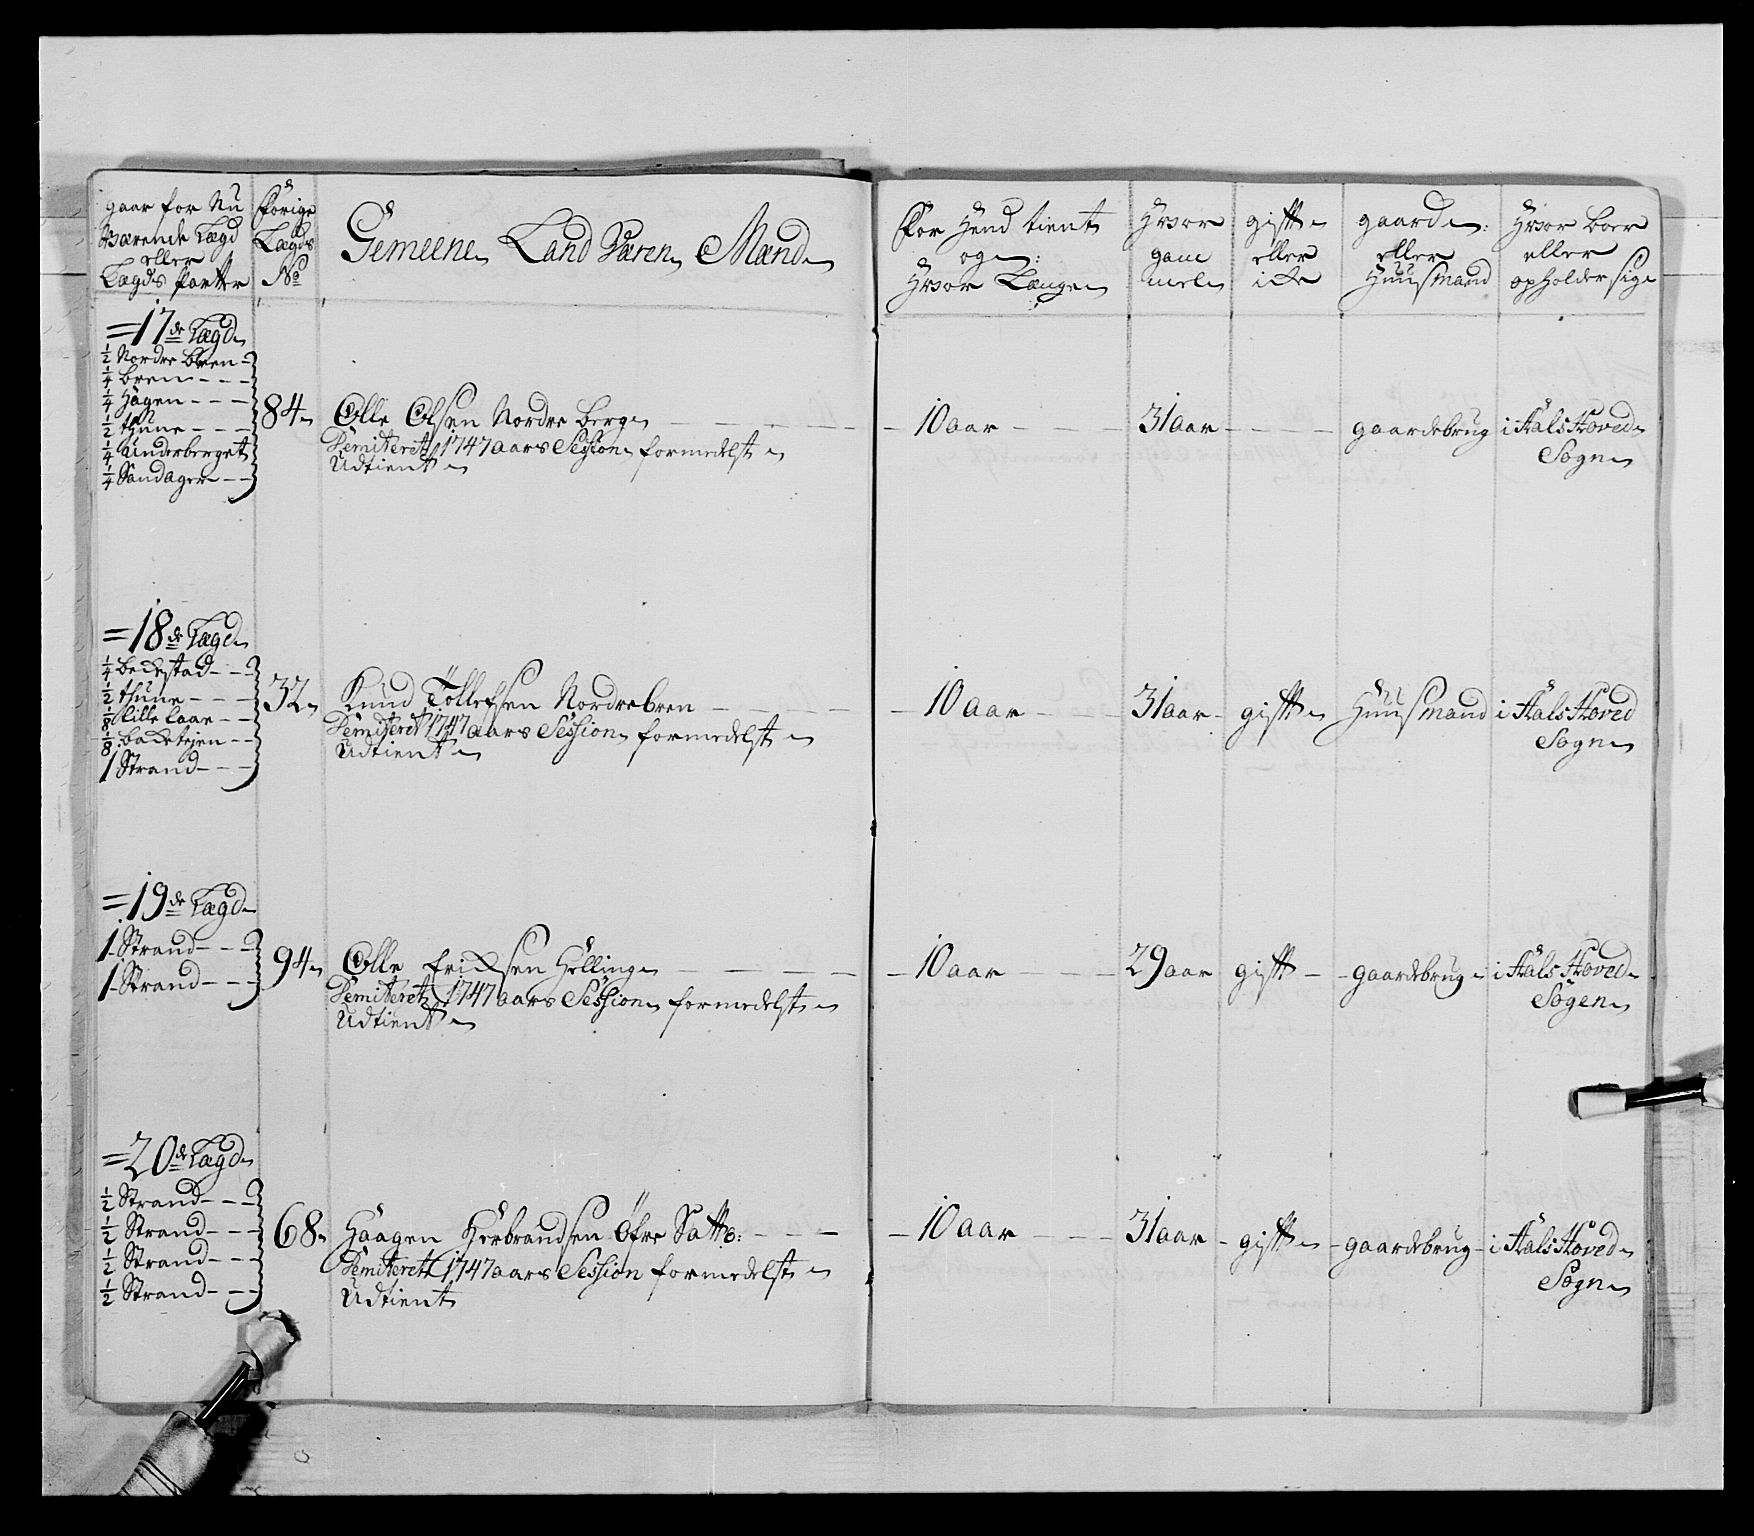 gaar for Nu
Værende Lægd
eller
Lægds Parter
Forige
Lægds
No
Gemeene Land Væren Mænd
For Hend tient
og
Hvor Længe
Hvor
gam
mel
gift
eller
icke
gaard
eller
Huusmand
Hvor boer
eller
opholder sig
=17de Lægd
1/2 Nordre bren
1/4 bren
1/4 Hagen
1/2 thune
1/4 Underberget
1/4 Sandager
84 Olle Olsen Nordre berg
Demiteret 1747 aars Session formedelst
Udtient
10 aar 31 aar gaardebrug i Aals Hoved
Sogn
=18de Lægd
1/4 beckestad
1/2 thune
1/8 Lille Laar
1/8 backetejen
1 Strand
32 Knud Tollefsen Nordrebren
Demiteret 1747 aars Session formedelst
Udtient
10 aar 31 aar gift Huusmand i Aals Hoved
Sogn
=19de Lægd
1 Strand
1 Strand
94 Olle Ericksen Hølling
Demiteret 1747 aars Session formedelst
Udtient
10 aar 29 aar gift gaardebrug i Aals Hoved
Sogen
=20de Lægd
1/2 Strand
1/2 Strand
1/2 Strand
1/2 Strand
68 Haagen Herbrandsen Øfre Satte:
Demiteret 1747 aars Session formedelst
Udtient
10 aar 31 aar gift gaardebrug i Aals Hoved
Sogn